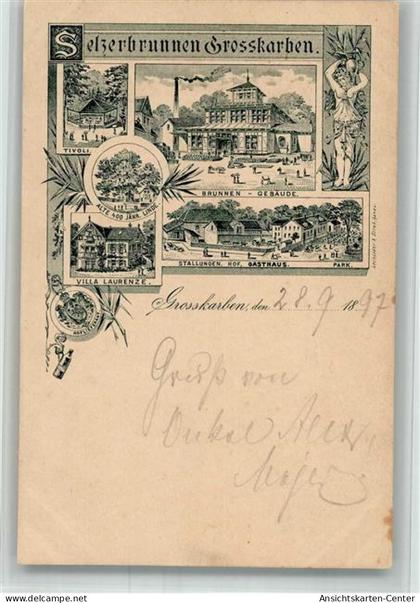 Selzerbrunnen Grosskarben.
TIVOLI.
BRUNNEN - GEBÄUDE.
ALTE 400 JÄHR. LINDE
STALLUNGEN. HOF. GASTHAUS. PARK.
VILLA LAURENZE.
Grosskarben, den 28. 9 1897
Gruß von
Onkel Alex
Ansichtskarten-Center